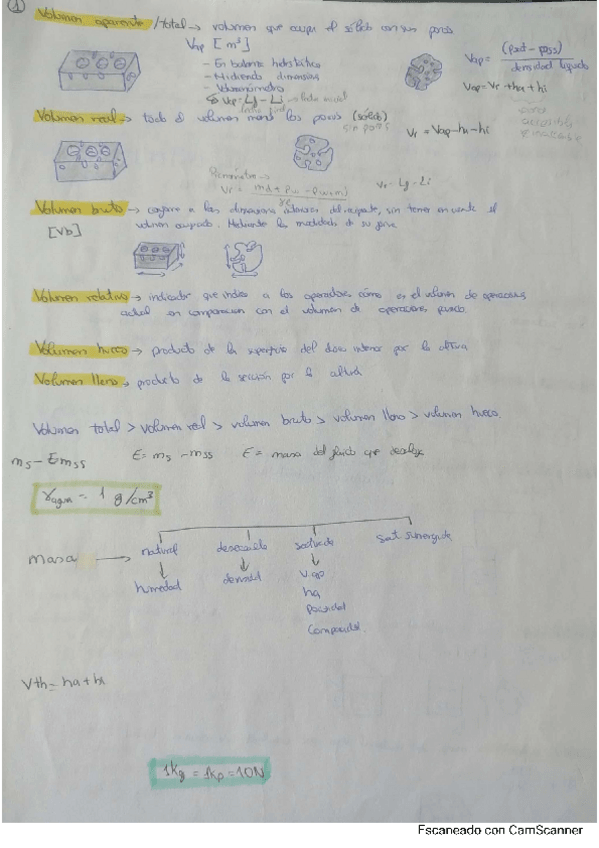 1
Volumen aparente / total → volumen que ocupa el sólido con sus poros
Vap [m³]
- En balanza hidrostática
- Midiendo dimensiones
- Volumenómetro
Vap = Lf - Li
Vap = (Psat - Pss) / densidad líquido
Vap = Vr + ha + hi
Volumen real → todo el volumen menos los poros (sólido)
sin poros
Vr = Vap - ha - hi
Vr = Lf - Li
Volumen bruto → a las dimensiones interiores del recipiente, sin tener en cuenta el
[Vb] volumen ocupado. Mediante las medidas de su
Volumen relativo → indicador que indica a los operadores cómo es el volumen de operaciones
actual en comparación con el volumen de operaciones
Volumen hueco → producto de la superficie del interior por la altura
Volumen lleno → producto de la sección por la altura
Volumen total > volumen real > volumen bruto > volumen lleno > volumen hueco.
ms - Emss E = ms - mss E = masa del fluido que desaloja
γagua = 1 g/cm³
masa → natural desecado saturada sat sumergida
humedad densidad Vap
ha
Porosidad
Compacidad
Vth = ha + hi
1Kg = 1Kp = 10N
Escaneado con CamScanner